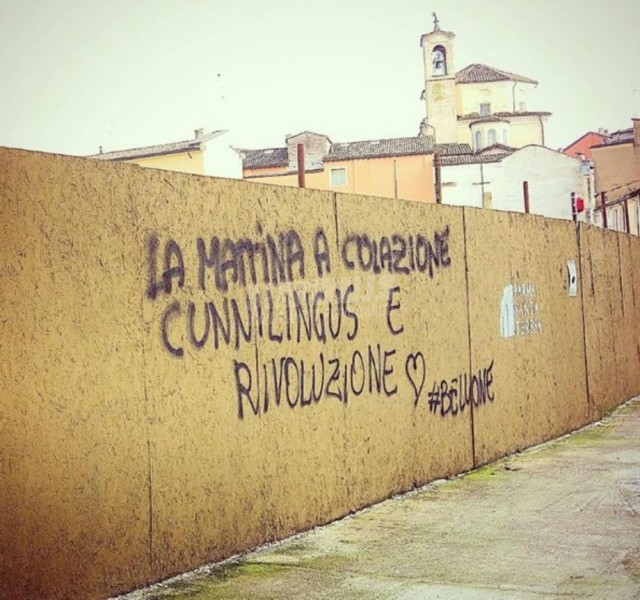 LA MATTINA A COLAZIONE
CUNNILINGUS E
RIVOLUZIONE ♡
#BELLYONE